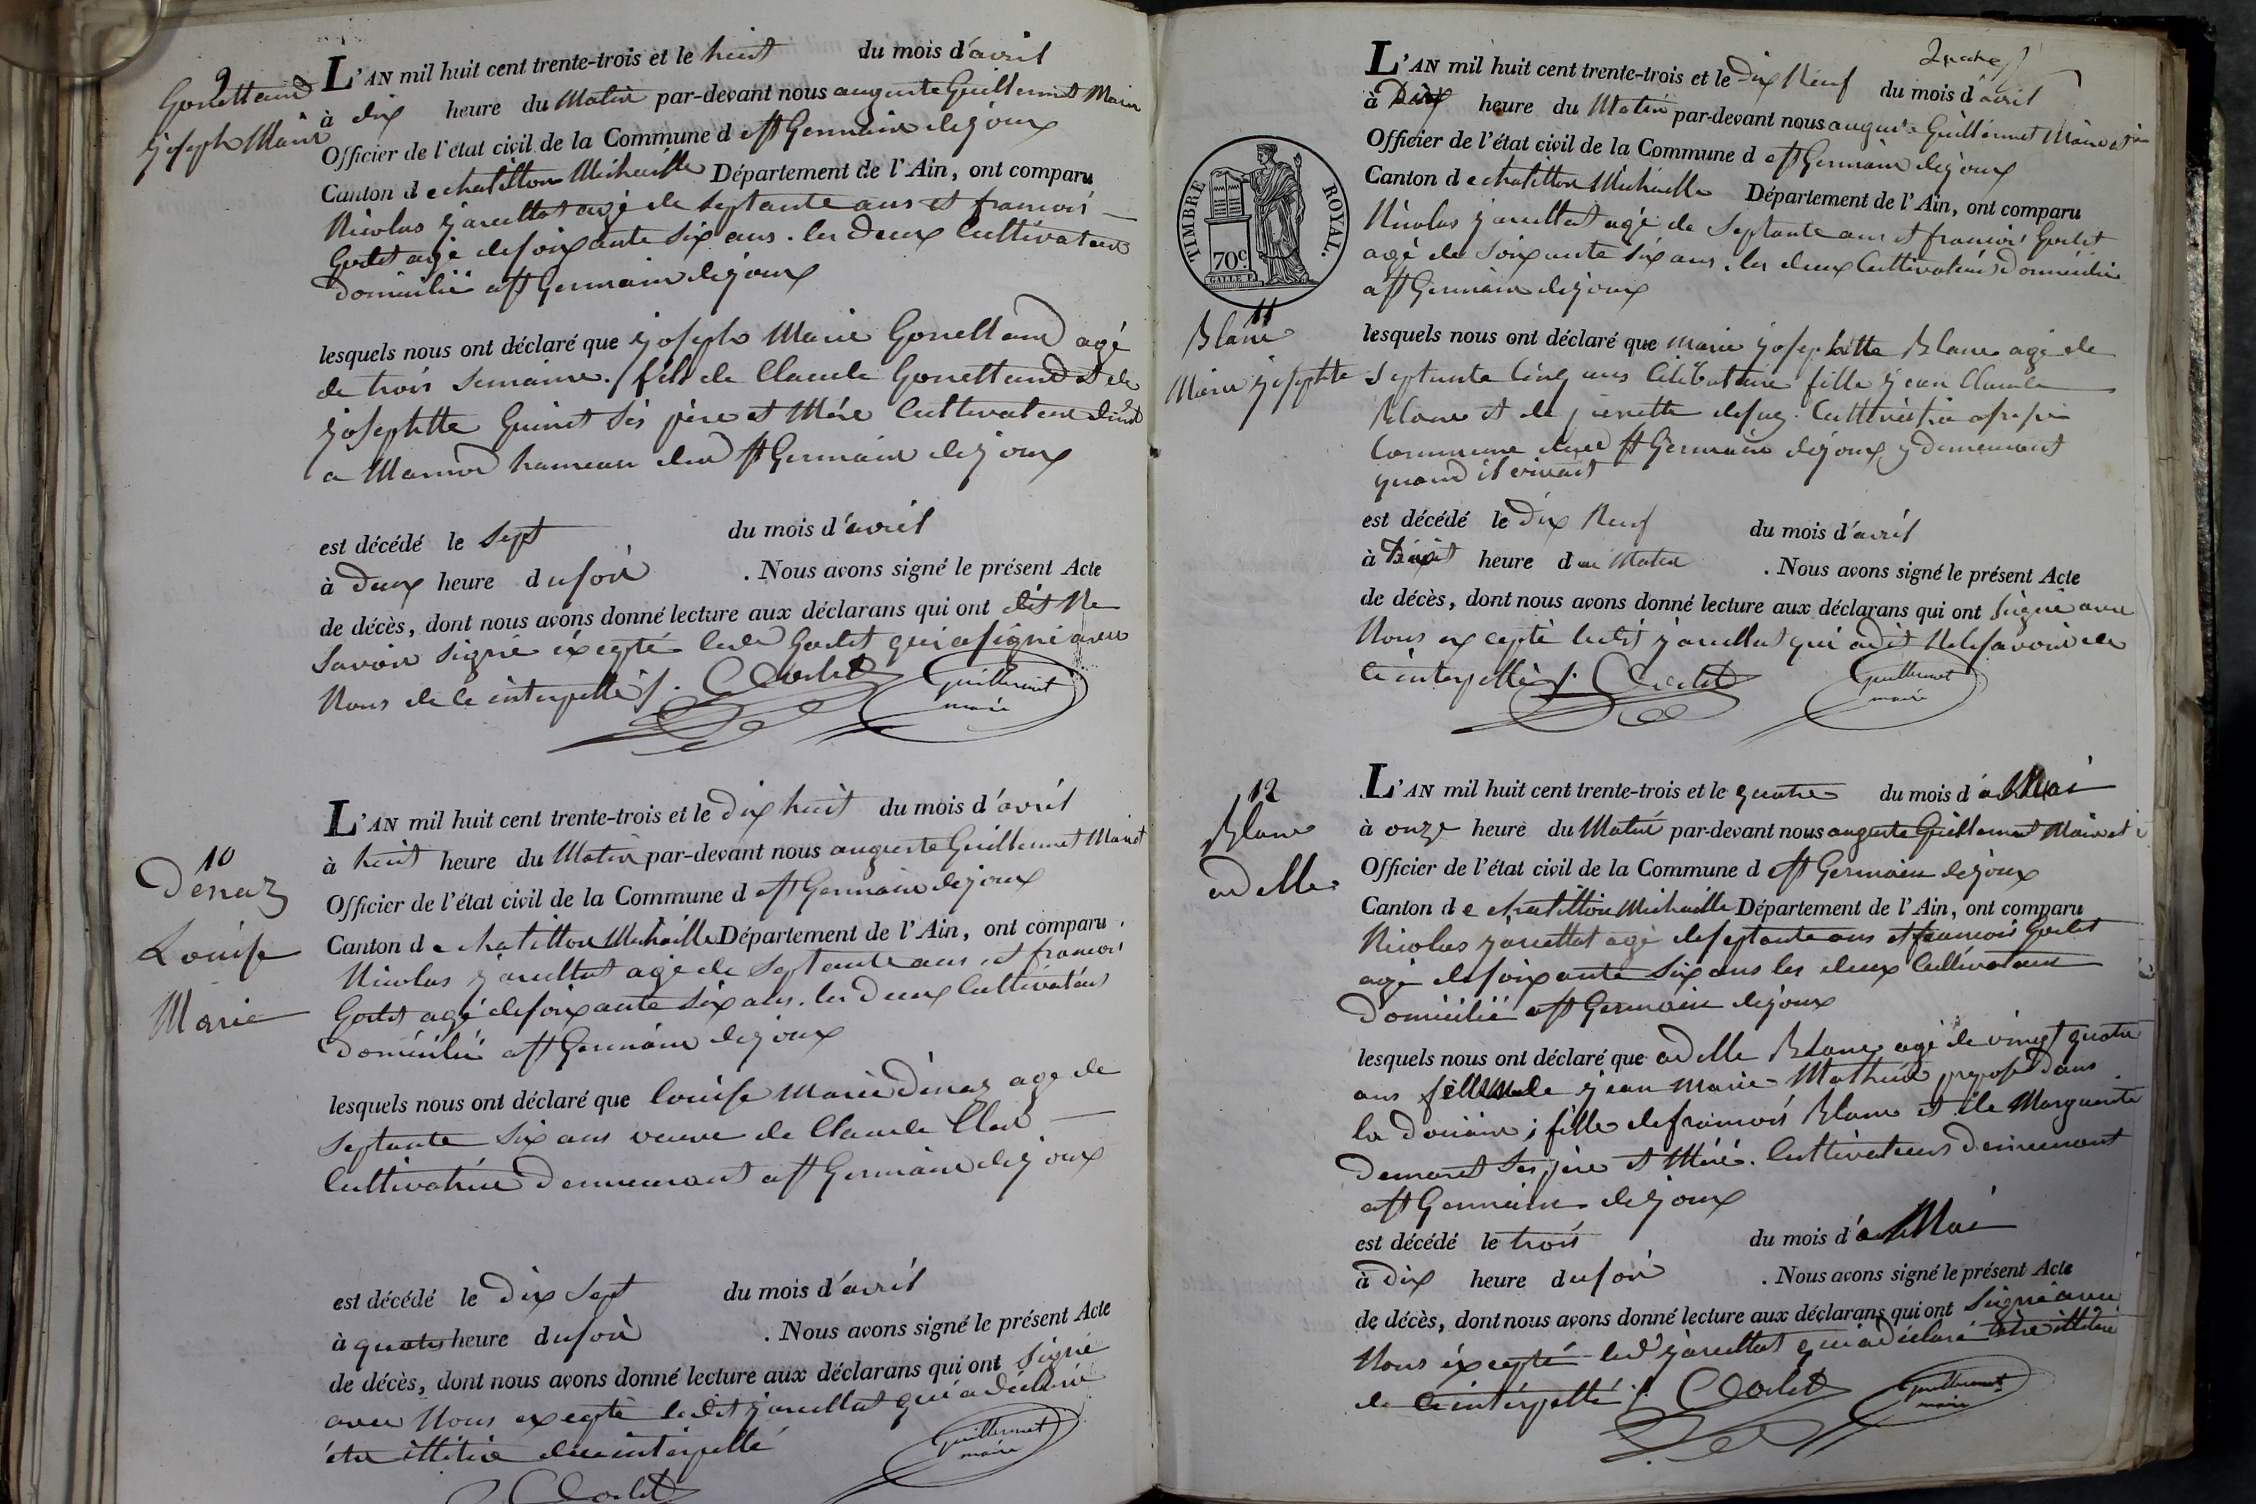 9
Gonettand
Joseph Marie
L'AN mil huit cent trente-trois et le huit du mois d'avril
à dix heure du Matin par-devant nous auguste Guillermet Maire
Officier de l'état civil de la Commune de St Germain de joux
Canton de chatillon Michaille Département de l'Ain, ont comparu
Nicolas jacullat agé de septante ans et francois
Godet agé de soixante six ans. les deux Cultivateurs
domicilié a St Germain de joux
lesquels nous ont déclaré que joseph Marie Gonettand agé
de trois semaine. fils de Claude Gonettand et de
josephtte Guinet ses père et Mère Cultivateur
a Marnod hameau dud St Germain de joux
est décédé le sept du mois d'avril
à deux heure du soir . Nous avons signé le présent Acte
de décès, dont nous avons donné lecture aux déclarans qui ont dit Ne
savoir signé éxcepté led Godet qui a signé avec
Nous de ce interpellé /.
Guillermet
maire
10
Dénaz
Louise
Marie
L'AN mil huit cent trente-trois et le dix huit du mois d'avril
à huit heure du Matin par-devant nous auguste Guillermet Maire et
Officier de l'état civil de la Commune de St Germain de joux
Canton de chatillon Michaille Département de l'Ain, ont comparu
Nicolas jacullat agé de septante ans, et francois
Godet agé de soixante six ans. les deux Cultivateurs
domicilié a St Germain de joux
lesquels nous ont déclaré que louise Marie dénaz age de
septante six ans veuve de Claude
Cultivatrice Demeurant a St Germain de joux
est décédé le dix sept du mois d'avril
à quatre heure du soir . Nous avons signé le présent Acte
de décès, dont nous avons donné lecture aux déclarans qui ont signé
avec Nous excepté ledit jacullat qui a déclaré
être illitiré de ce interpellé
Guillermet
maire
L'AN mil huit cent trente-trois et le dix Neuf du mois d'avril
à heure du Matin par-devant nous auguste Guillermet Maire et
Officier de l'état civil de la Commune de St Germain de joux
Canton de chatillon Michaille Département de l'Ain, ont comparu
Nicolas jacullat agé de septante ans et francois Godet
agé de soixante six ans. les deux Cultivateurs domicilié
a St Germain de joux
TIMBRE ROYAL.
70c
11
Blanc
Marie josephtte
lesquels nous ont déclaré que marie josephtte Blanc agé de
septante cinq ans Célibataire fille jean Claude
Blanc et de pierrette Cultivatrice
Commune dud St Germain de joux y demeurant
quand il vivait
est décédé le dix Neuf du mois d'avril
à heure du Matin . Nous avons signé le présent Acte
de décès, dont nous avons donné lecture aux déclarans qui ont signé avec
Nous excepté ledit jacullat qui a dit Ne le savoir de
ce interpellé /.
Guillermet
maire
12
Blanc
adelle
L'AN mil huit cent trente-trois et le quatre du mois d Mai
à onze heure du Matin par-devant nous auguste Guillermet Maire et
Officier de l'état civil de la Commune de St Germain de joux
Canton de chatillon Michaille Département de l'Ain, ont comparu
Nicolas jacullat agé de septante ans et francois Godet
agé de soixante six ans les deux Cultivateurs
domicilié a St Germain de joux
lesquels nous ont déclaré que adelle Blanc agé de vingt quatre
ans de jean Marie Mathieu préposé dans
la douane ; fille de francois Blanc et de Marguerite
Demaret ses père et Mère. Cultivateurs Demeurant
a St Germain de joux
est décédé le trois du mois d Mai
à dix heure du soir . Nous avons signé le présent Acte
de décès, dont nous avons donné lecture aux déclarans qui ont signé avec
Nous éxcepté led jacullat qui a déclaré être illitiré
de ce interpellé /.
Guillermet
maire